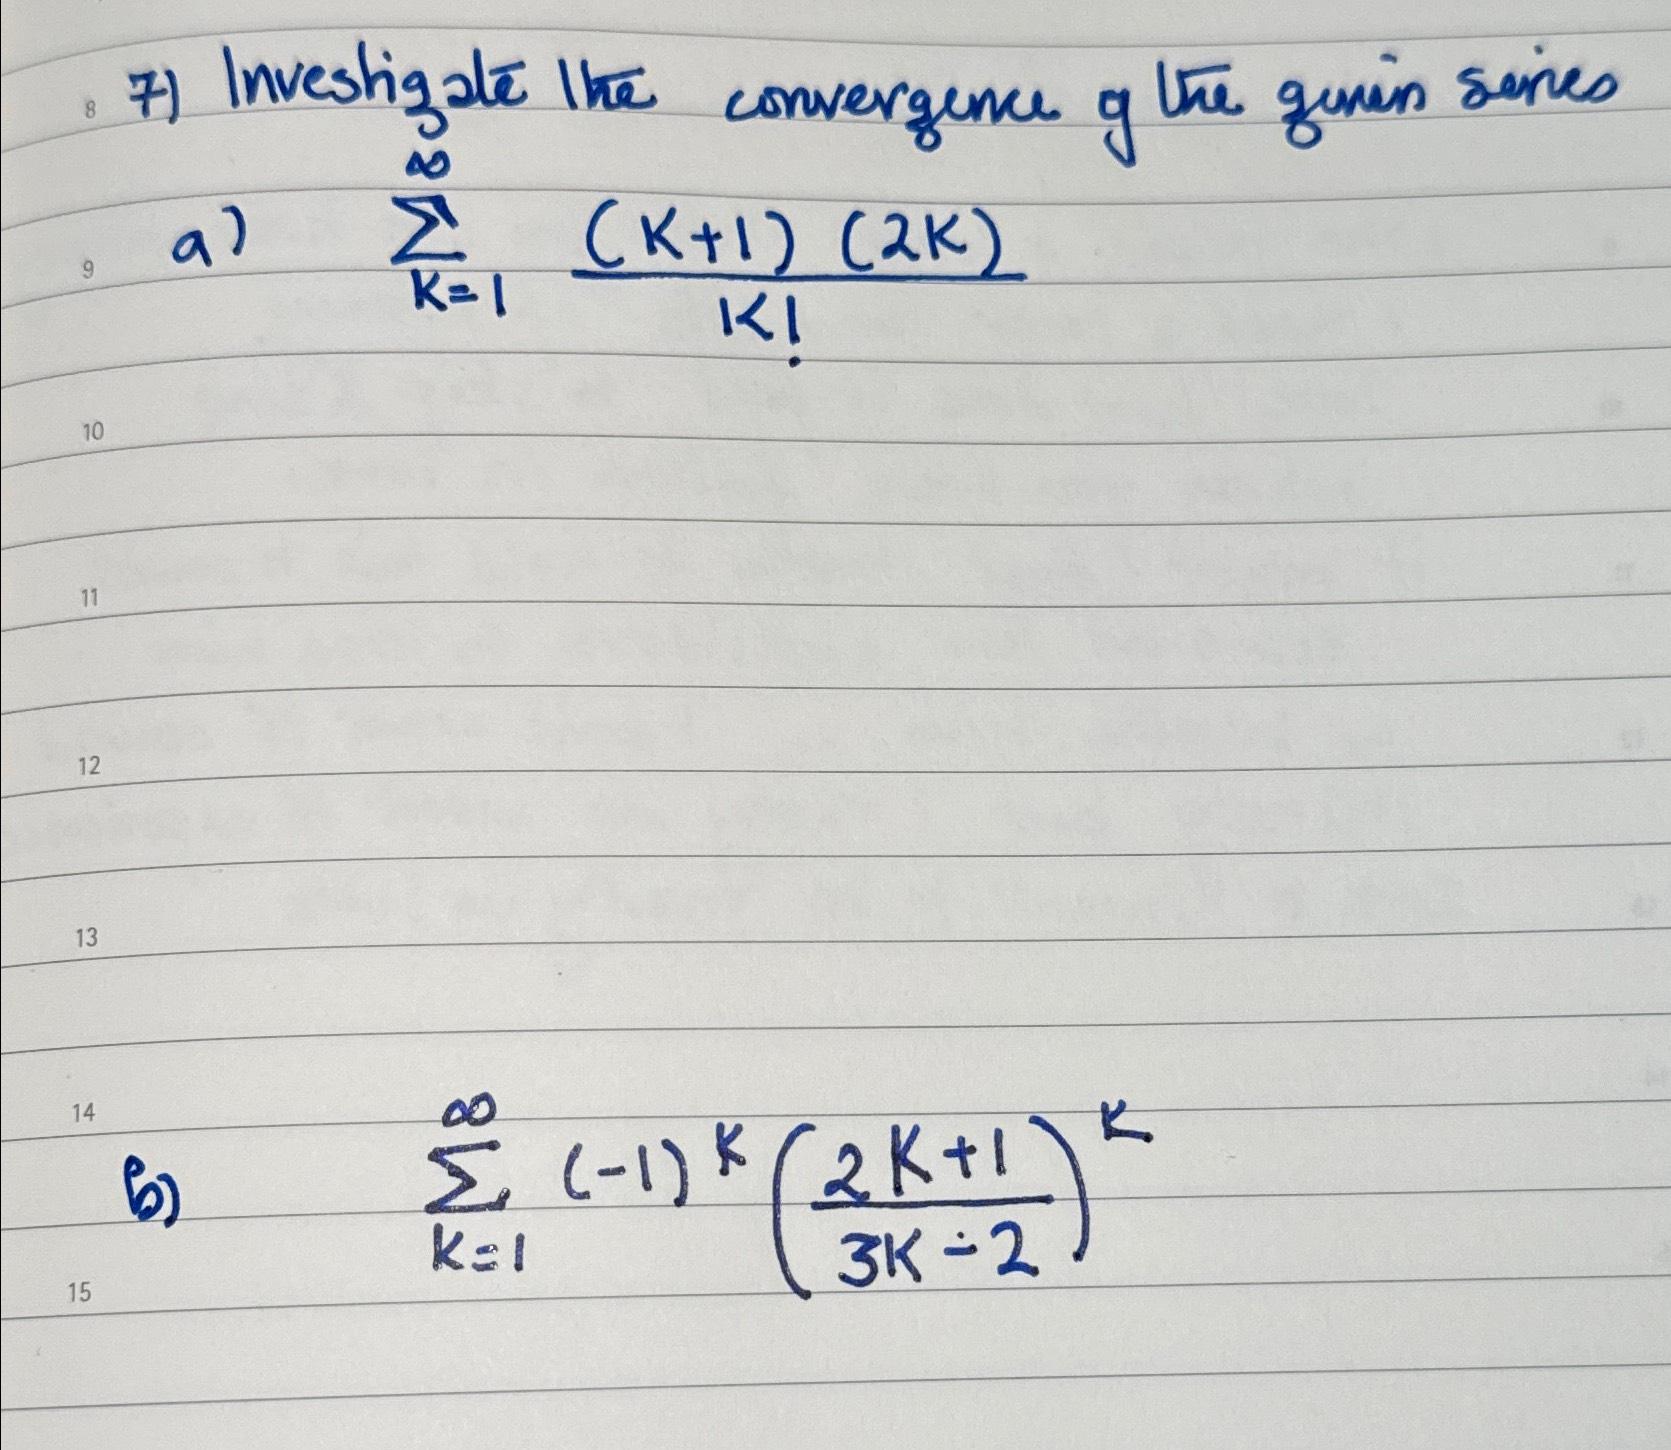 8 7) Investigate the convergence of the given series
9 a) ∞ ∑ k=1 (K+1) (2K) / K!
10
11
12
13
14
b) ∞ ∑ k=1 (-1)^K (2K+1 / 3K-2)^K
15